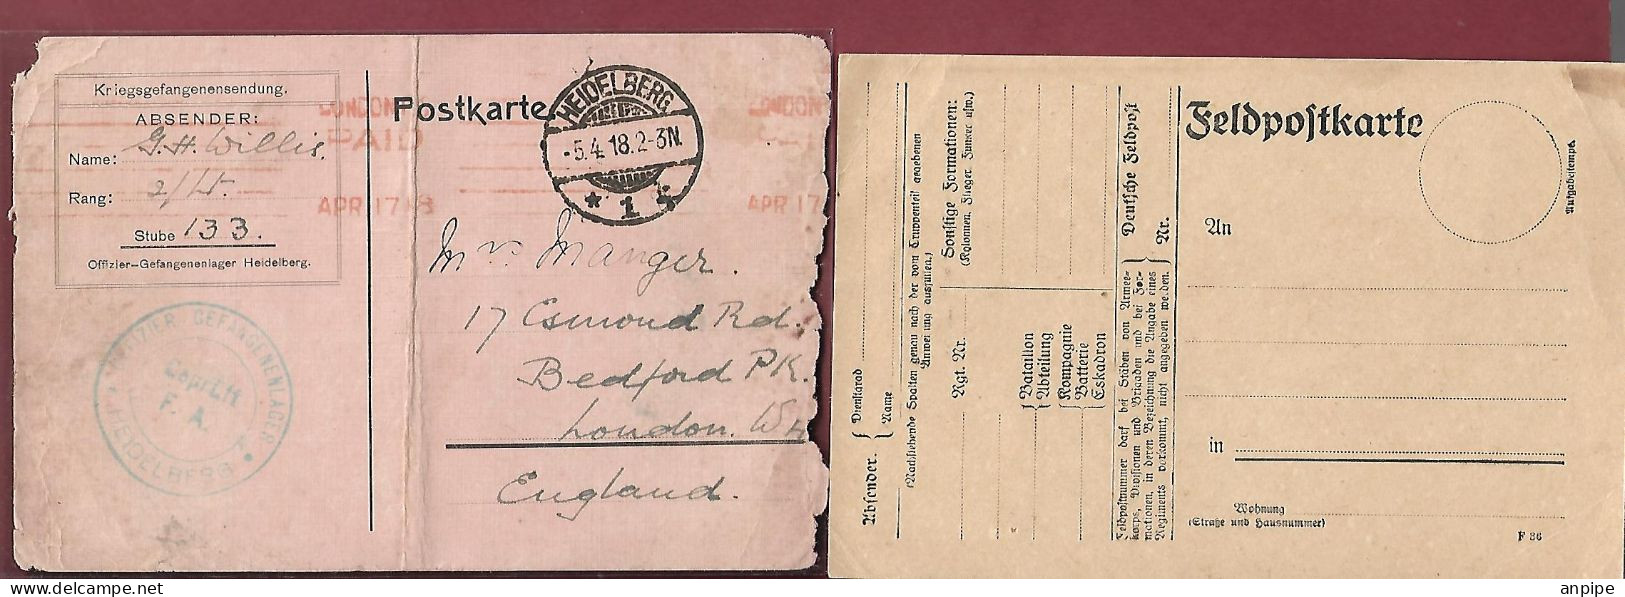 Kriegsgefangenensendung.
ABSENDER:
Name: G.H. Willis.
Rang: 2/Lt.
Stube 133.
Offizier-Gefangenenlager Heidelberg.
Postkarte
LONDON
PAID
APR 17 18
LONDON
APR 17
HEIDELBERG
-5.4.18.2-3N.
* 1
Mrs Manger.
17 Esmond Rd.
Bedford PK.
London. W4
England.
OFFIZIER GEFANGENENLAGER
Geprüft
F. A.
* HEIDELBERG *
Feldpostkarte
Aufgabestempel
An
in
Wohnung
(Straße und Hausnummer)
F 86
Absender.
Dienstgrad
Name
(Nachstehende Spalten genau nach der vom Truppenteil gegebenen
Anweisung ausfüllen.)
Sonstige Formationen:
(Kolonnen, Flieger, Funker usw.)
Rgt. Nr.
Bataillon
Abteilung
Kompagnie
Batterie
Eskadron
Deutsche Feldpost
Nr.
Feldpostnummer darf bei Stäben von Armee-
korps, Divisionen und Brigaden und bei For-
mationen, in deren Bezeichnung die Angabe eines
Regiments vorkommt, nicht angegeben werden.
anpipe